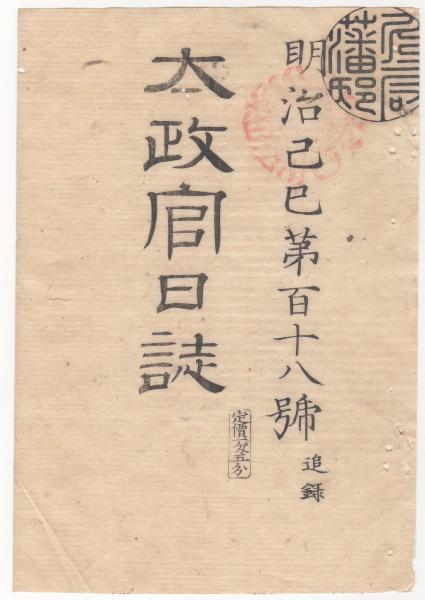 明治己巳第百十八號 追録
太政官日誌
定價
藩邸